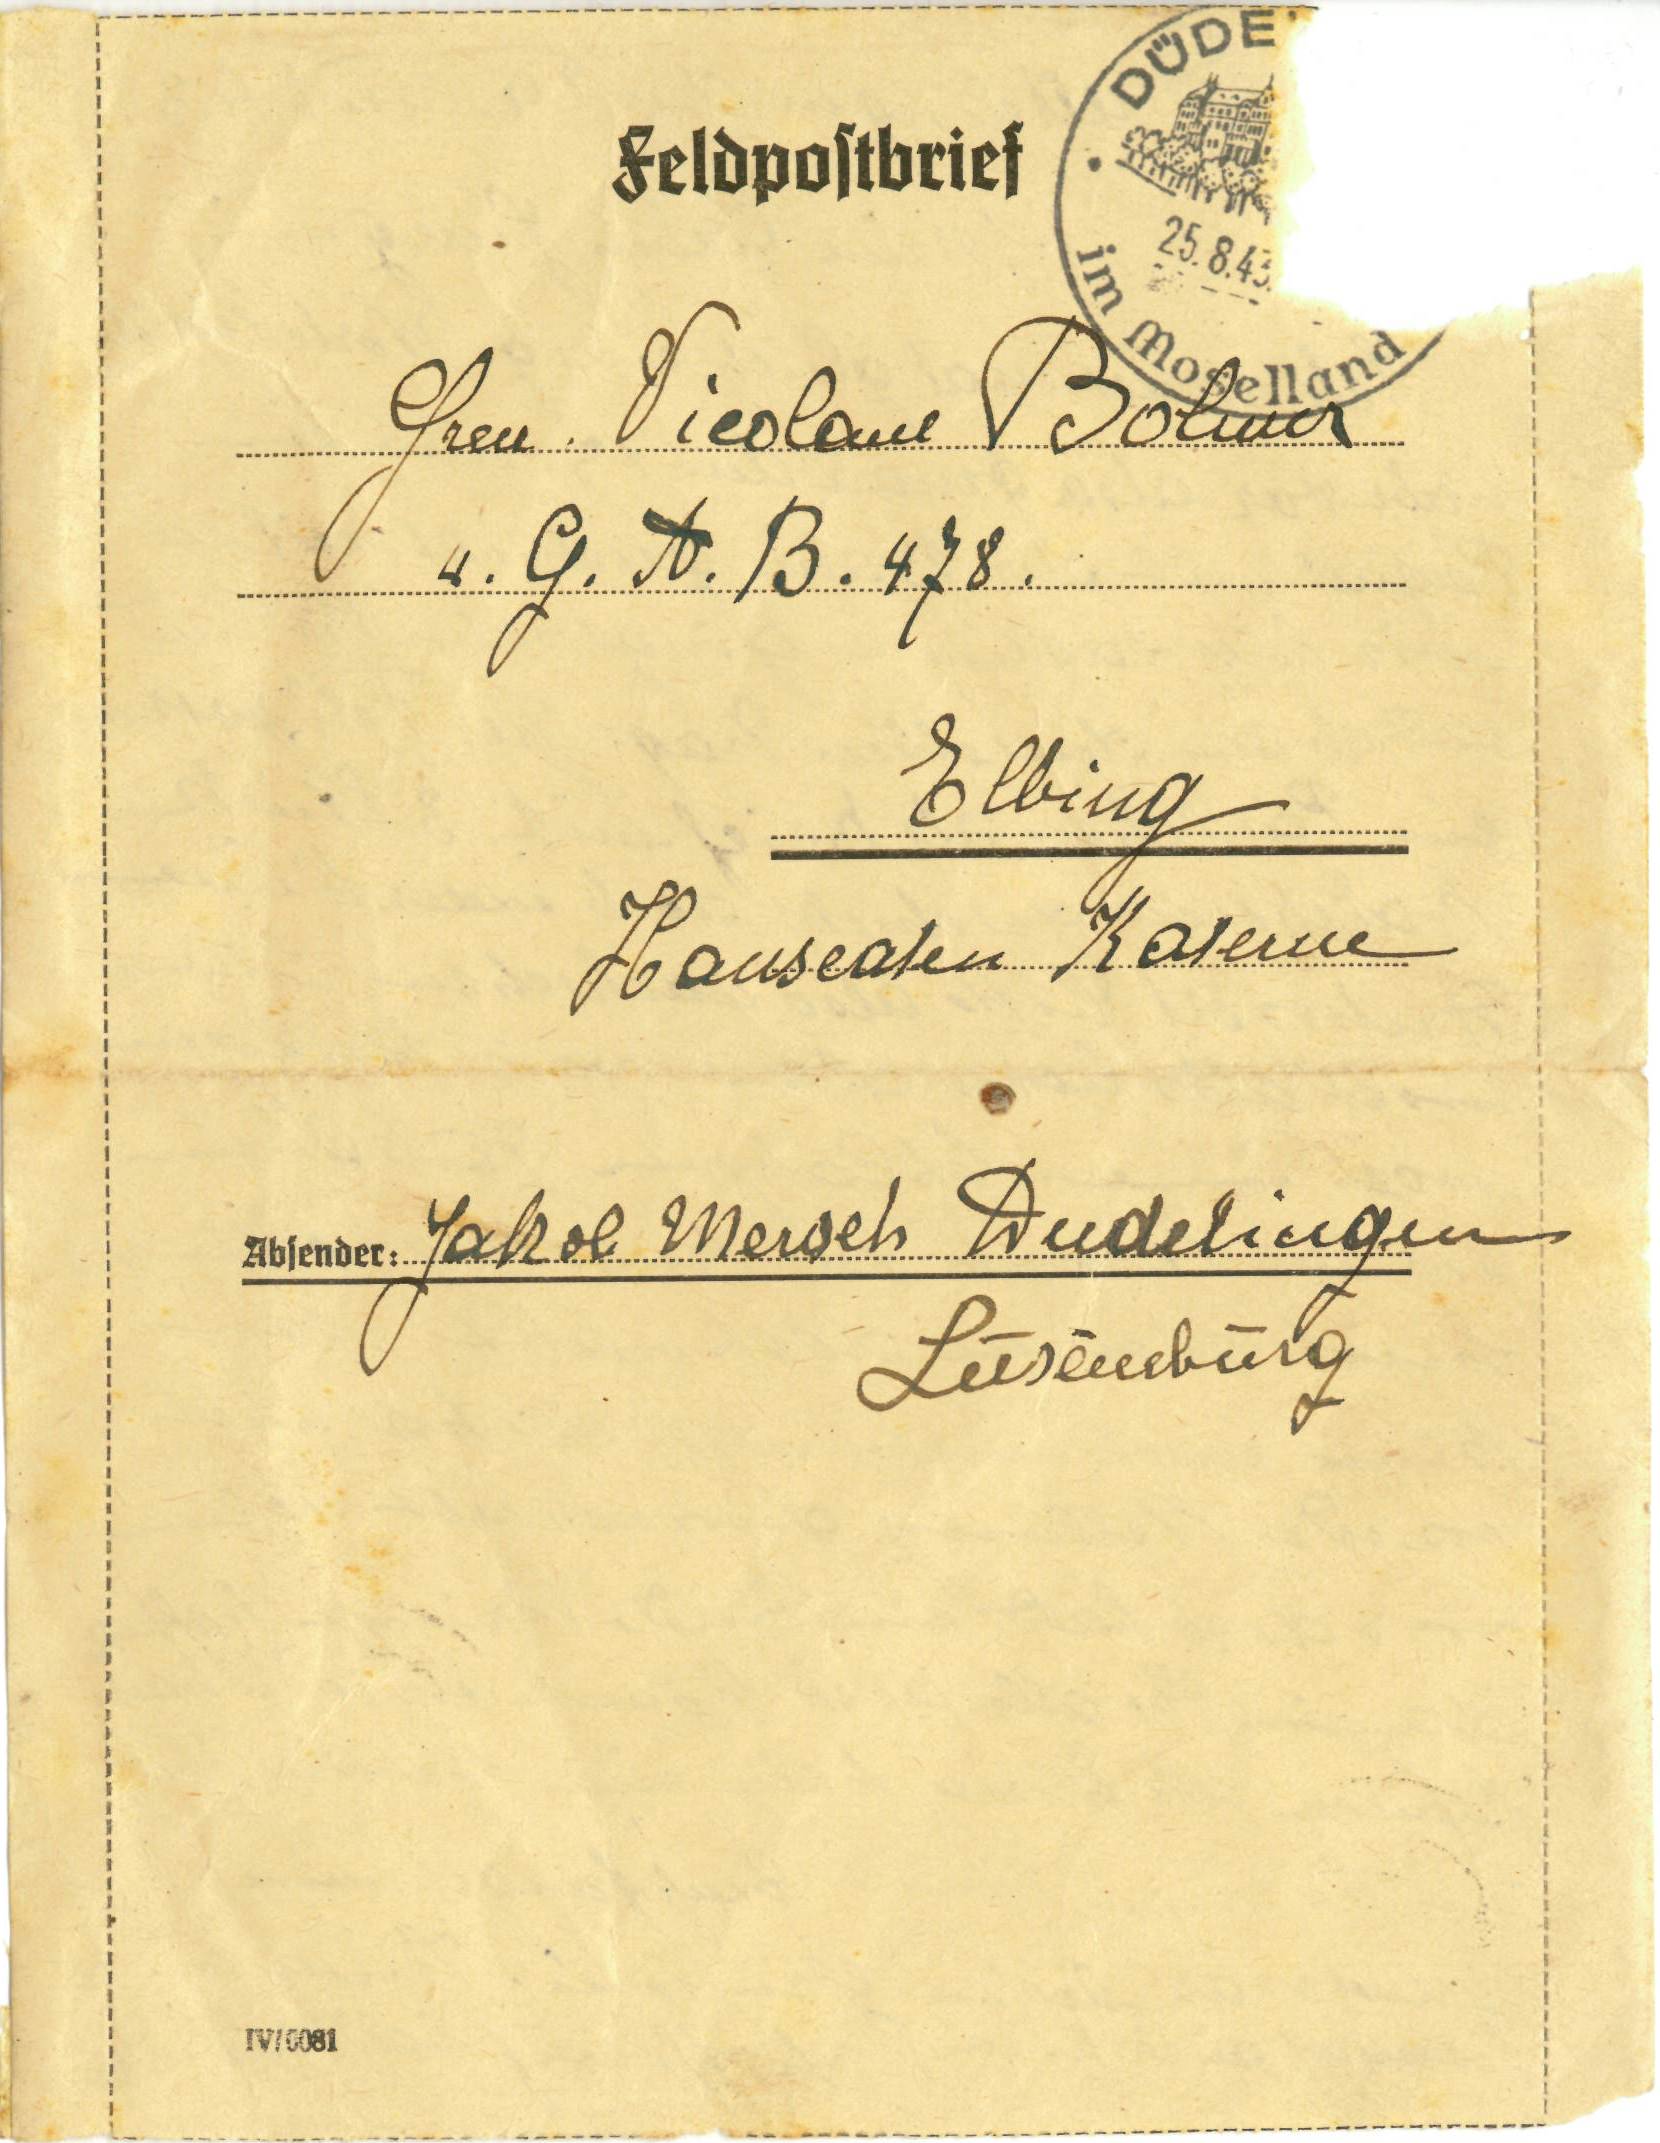 DÜDE
25.8.43.
im Moselland
Feldpostbrief
Gren. Nicolaus Bohmer
4. G. A. B. 478.
Elbing
Hanseaten Kaserne
Absender: Jakob Mersch Dudelingen
Luxemburg
IV/6081